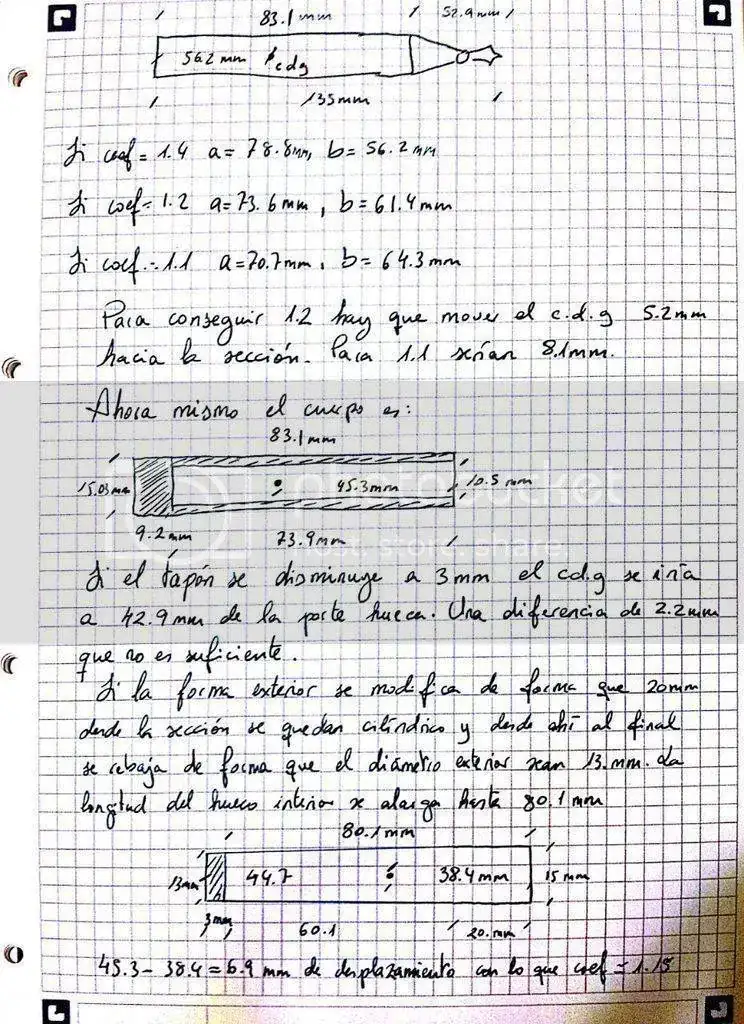 83.1 mm 52.9 mm
56.2 mm cdg
135mm
Si coef = 1.4 a= 78.8mm, b= 56.2mm
Si coef= 1.2 a=73.6mm, b=61.4mm
Si coef.= 1.1 a=70.7mm, b= 64.3mm
Para conseguir 1.2 hay que mover el c.d.g 5.2mm
hacia la sección. Para 1.1 serían 8.1mm.
Ahora mismo el cuerpo es:
83.1mm
15.03mm 45.3mm 10.5 mm
9.2mm 73.9mm
Si el tapón se disminuye a 3mm el cdg se iría
a 42.9mm de la parte hueca. Una diferencia de 2.2mm
que no es suficiente.
Si la forma exterior se modifica de forma que 20mm
desde la sección se quedan cilíndrico y desde ahí al final
se rebaja de forma que el diámetro exterior sean 13.mm. La
longitud del hueco interior se alarga hasta 80.1mm
80.1mm
13mm 44.7 38.4mm 15mm
3mm 60.1 20.mm
45.3-38.4=6.9 mm de desplazamiento con lo que coef = 1.15
photobucket
host. store. share.